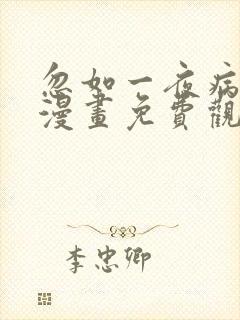 忽如一夜病
漫畫免費觀
李忠卿